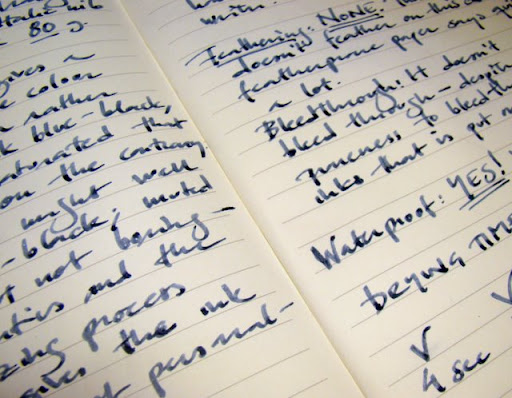 80
gives a
colour
rather
blue-black,
saturated that
on the contrary.
might well
-black; muted
not boring-
and the
process
gives the ink
personal-
writer.
Feathering: NONE.
doesn't feather on this
featherprone paper says
a lot.
Bleedthrough: It doesn't
bleed through - despite
proneness to bleedth
inks that is put
Waterproof: YES!
Drying TIME
V
4 sec